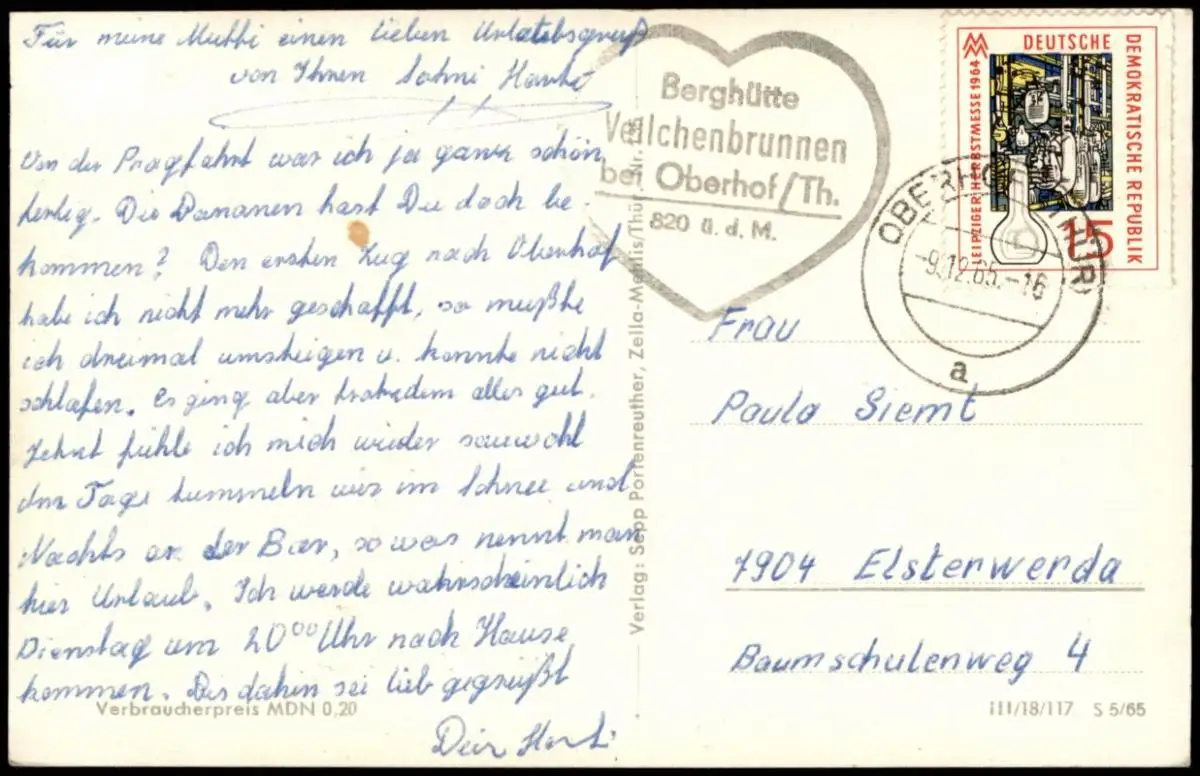 Für meine Mutti einen lieben Urlaubsgruß
von Ihrem Sohni
Von der Pragfahrt war ich ja ganz schön
fertig. Die Bananen hast Du doch be-
kommen? Den ersten Zug nach Oberhof
habe ich nicht mehr geschafft, so mußte
ich dreimal umsteigen u. konnte nicht
schlafen. Es ging aber trotzdem alles gut.
Jetzt fühle ich mich wieder sauwohl
Am Tage tummeln wir im Schnee und
Nachts an der Bar, so was nennt man
hier Urlaub. Ich werde wahrscheinlich
Dienstag um 20⁰⁰ Uhr nach Hause
kommen. Bis dahin sei lieb gegrüßt
Dein
Verbraucherpreis MDN 0,20
Verlag: Sepp Portenreuther, Zella-Mehlis/Thür.
Berghütte
Veilchenbrunnen
bei Oberhof/Th.
820 ü. d. M.
MM
DEUTSCHE DEMOKRATISCHE REPUBLIK
LEIPZIGER HERBSTMESSE 1964
15
OBERHOF (THÜR)
-9.12.65.-16
a
Frau
Paula Siemt
7904 Elsterwerda
Baumschulenweg 4
III/18/117 S 5/65